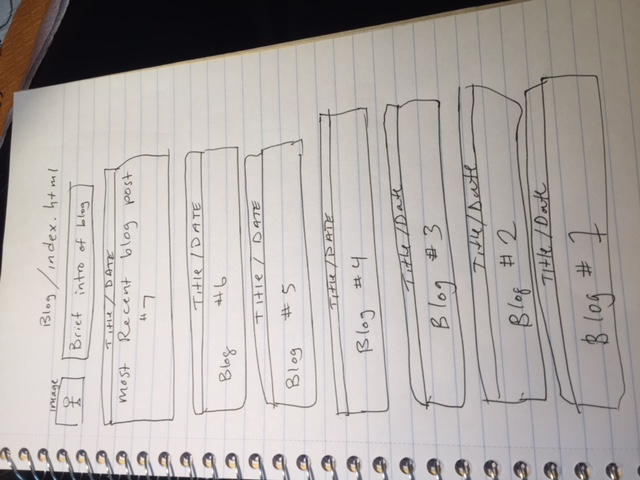 Blog/index.html
image
Brief intro of blog
Title/DATE
most Recent blog post
#7
Title/DATE
Blog #6
Title/DATE
Blog #5
Title/DATE
Blog #4
Title/Date
Blog #3
Title/Date
Blog #2
Title/Date
Blog #1